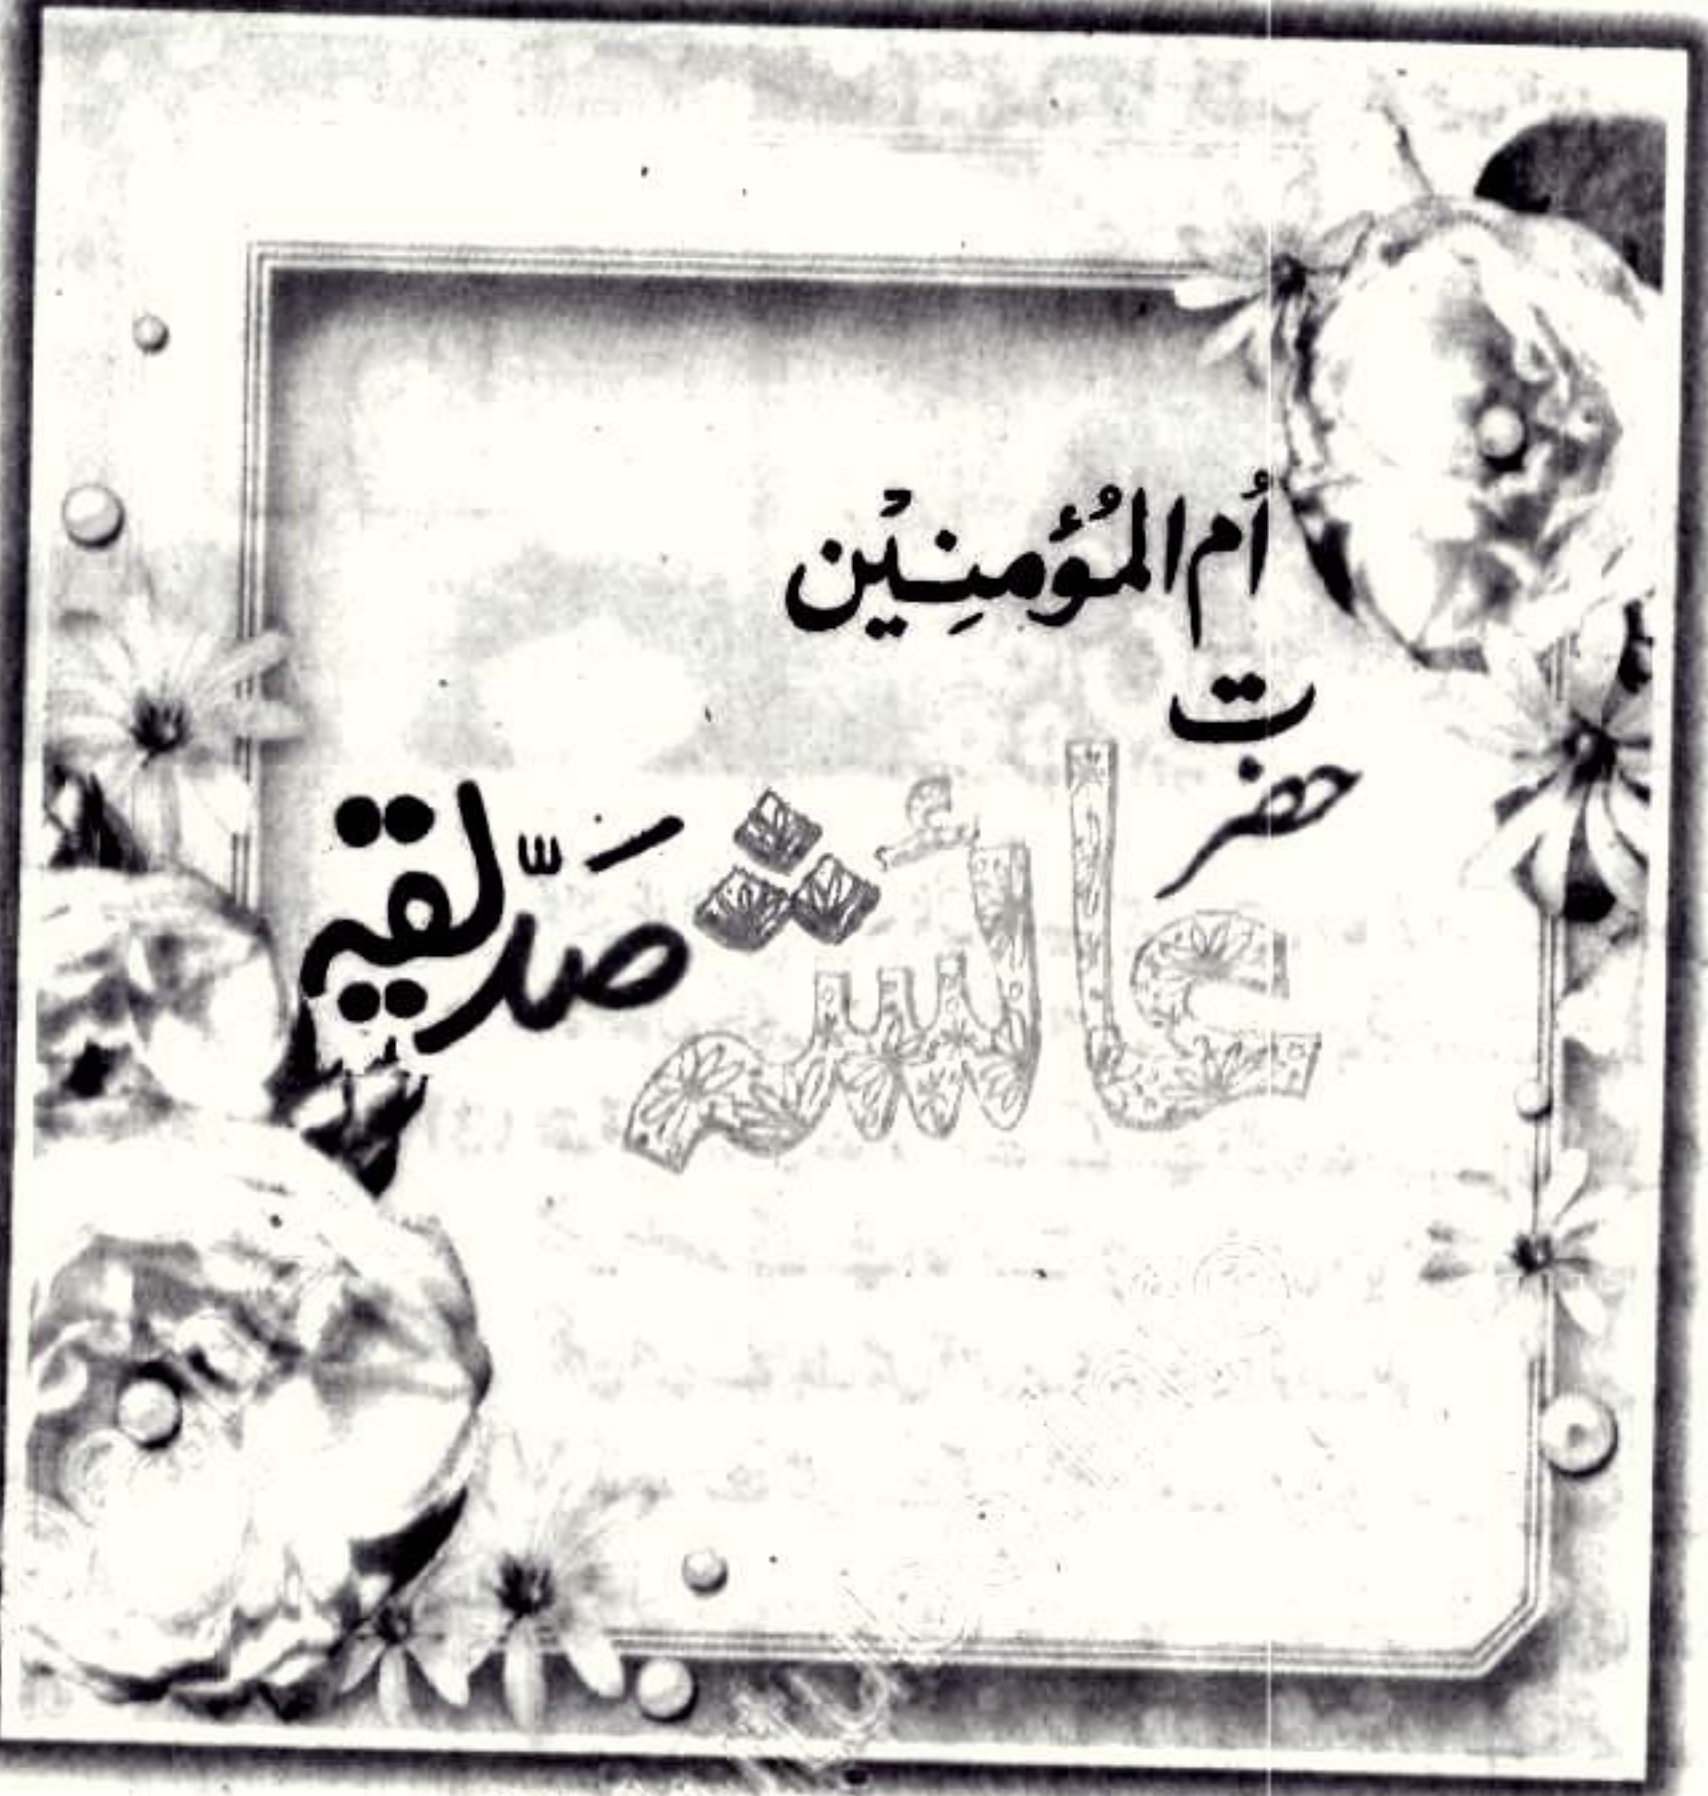 اُم المُؤمنِیْن
حضرت
عائشہ صَدّیقہ